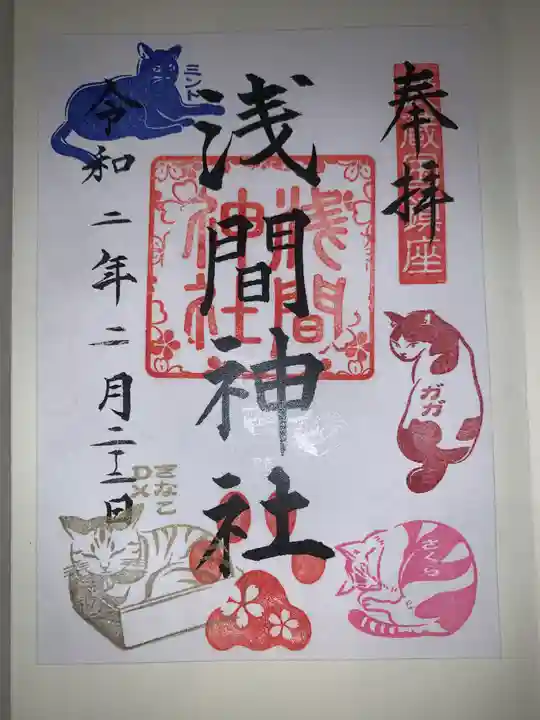 奉拝
鎮座
浅間神社
浅間
神社
令和二年二月二十二日
ミント
ガガ
きなこ
DX
さくら